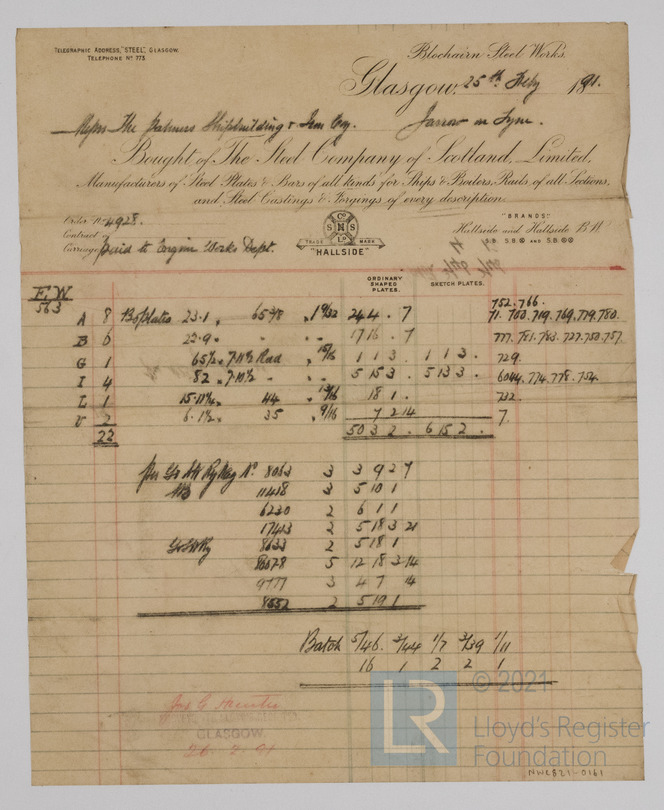 TELEGRAPHIC ADDRESS, "STEEL", GLASGOW.
TELEPHONE No 773.
Blochairn Steel Works.
Glasgow, 25th Feby 1891.
Messrs The Palmers Shipbuilding & Iron Coy. Jarrow on Tyne.
Bought of The Steel Company of Scotland, Limited,
Manufacturers of Steel Plates & Bars of all kinds for Ships & Boilers, Rails of all Sections,
and Steel Castings & Forgings of every description.
Order No 4928.
Contract
Carriage Paid to Engine Works Dept.
Co S N S Ld
TRADE MARK
"HALLSIDE"
"BRANDS"
Hallside and Hallside B.H
S.B. S.B. AND S.B.
ORDINARY SHAPED PLATES. SKETCH PLATES.
E.W
563
752. 766.
A 8 Bo plates 23.1 . 65 3/8 . 1 9/32 24 4 . 7 71. 700. 719. 769. 779. 780.
B 6 23.9 . " . " 17 16 . 7 777. 781. 783. 727. 750. 757.
G 1 65 1/2 . 7.11 1/2 Rad . 15/16 1 1 3 . 1 1 3 . 729.
I 4 82 . 7.10 1/2 . " . " 5 15 3 . 5 13 3 . 6044. 774. 778. 754.
L 1 15.11 1/4 . 44 . 13/16 18 1 . 732.
V 2 6.1 1/2 . 35 . 9/16 7 2 14 7.
22 50 3 2 . 6 15 2 .
Per Ry Wag No 8063 3 3 9 2 7
11438 3 5 10 1
6230 2 6 1 1
17423 2 5 18 3 21
8633 2 5 18 1
5 12 18 3 14
9777 3 4 7 14
8552 2 5 19 1
Batch 5/46. 3/44 1/7 3/39 1/11
16 1 2 2 1
GLASGOW.
26.2.91
LR
© 2021
Lloyd's Register
Foundation
NWC821-0161